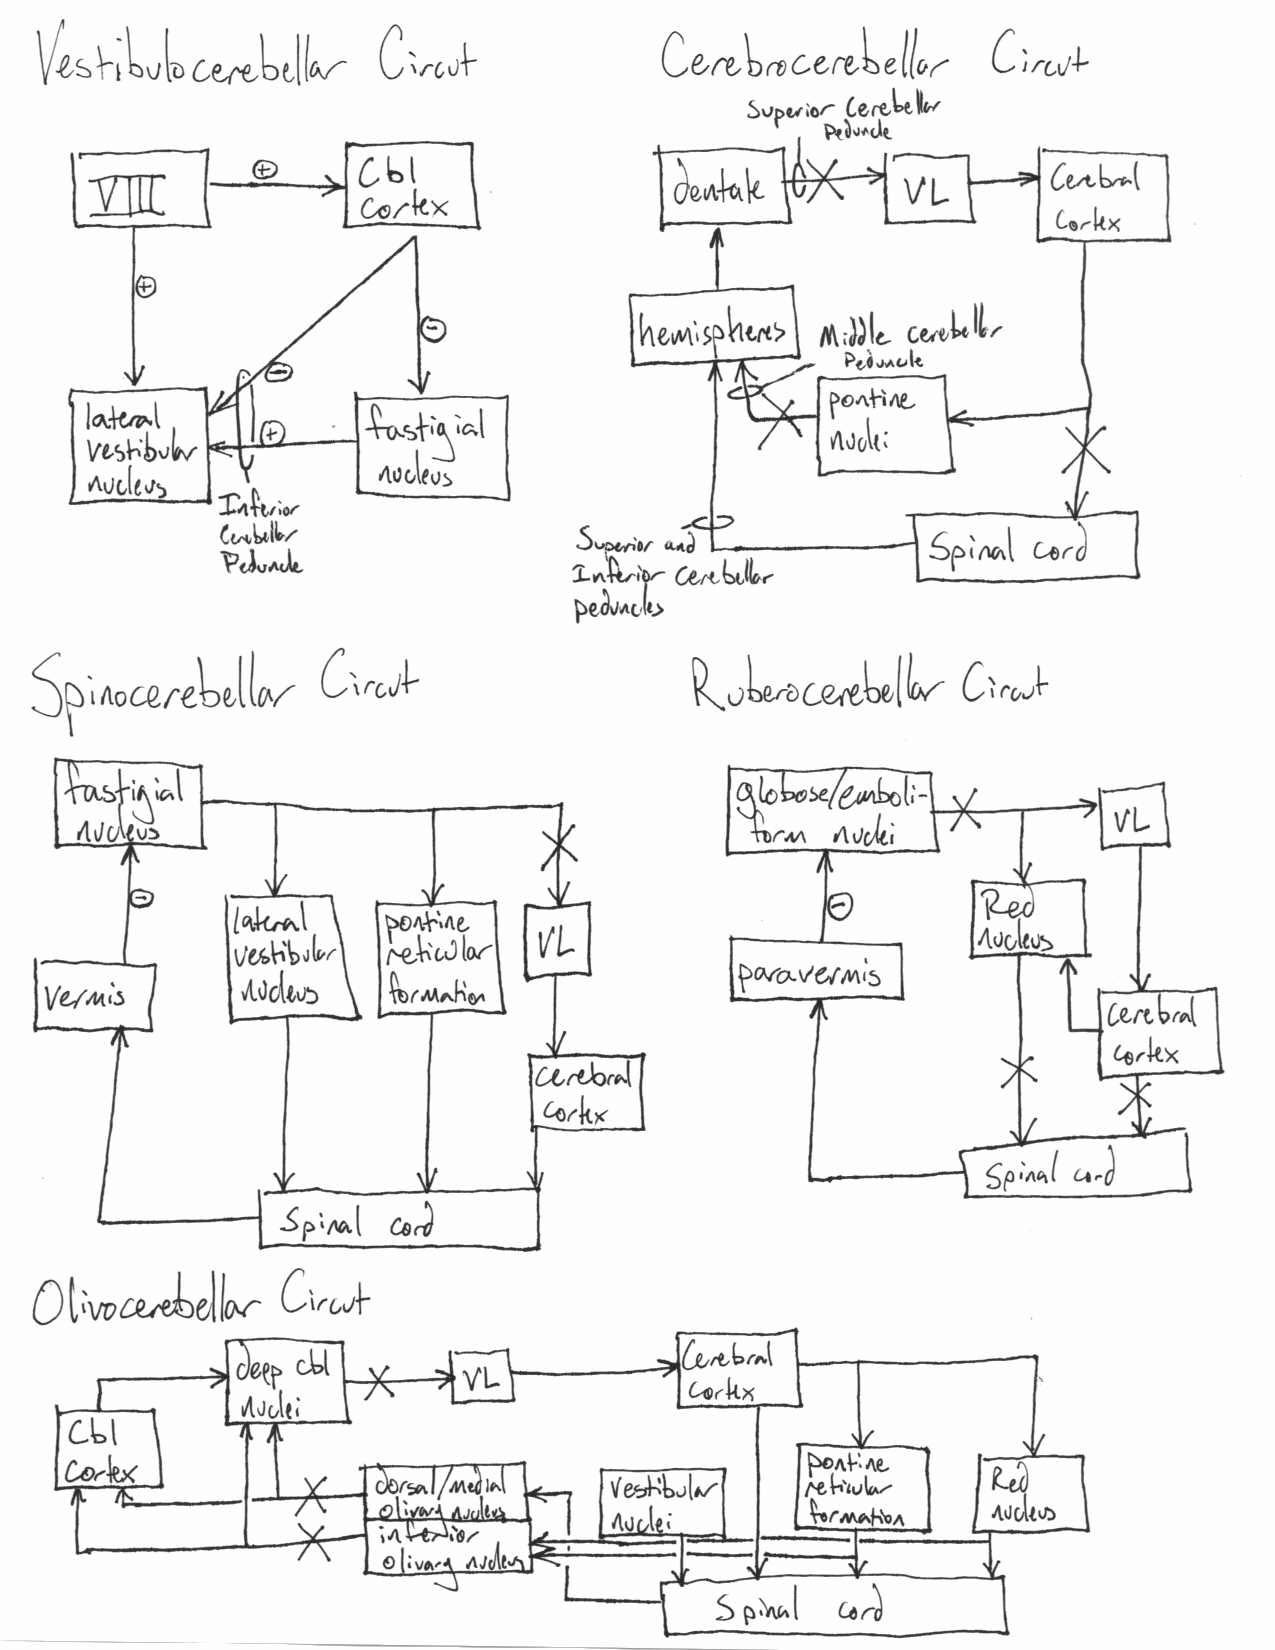 Vestibulocerebellar Circut
VIII
+
Cbl
cortex
+
-
-
+
lateral
vestibular
nucleus
fastigial
nucleus
Inferior
Cerebellar
Peduncle
Cerebrocerebellar Circut
Superior Cerebellar
Peduncle
dentate
VL
Cerebral
cortex
hemispheres
Middle cerebellar
Peduncle
pontine
nuclei
Superior and
Inferior Cerebellar
peduncles
Spinal cord
Spinocerebellar Circut
fastigial
nucleus
-
vermis
lateral
vestibular
nucleus
pontine
reticular
formation
VL
cerebral
cortex
Spinal cord
Ruberocerebellar Circut
globose/emboli-
form nuclei
VL
Red
nucleus
-
paravermis
cerebral
cortex
Spinal cord
Olivocerebellar Circut
deep cbl
nuclei
VL
Cerebral
cortex
Cbl
cortex
dorsal/medial
olivary nucleus
inferior
olivary nucleus
vestibular
nuclei
pontine
reticular
formation
Red
nucleus
Spinal cord